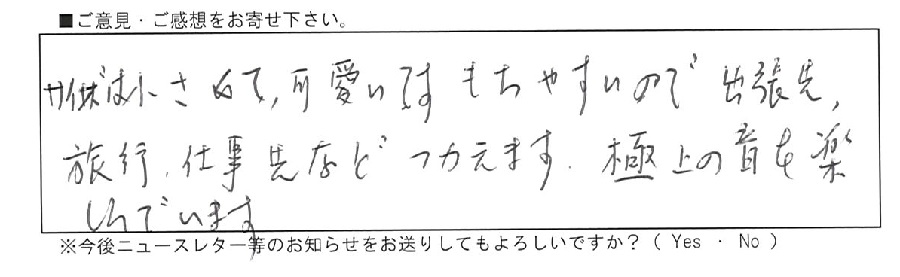 ■ご意見・ご感想をお寄せ下さい。
サイズは小さめで、可愛いです もちやすいので 出張先、
旅行、仕事先など つかえます. 極上の音を楽
しんでいます
※今後ニュースレター等のお知らせをお送りしてもよろしいですか？（ Yes ・ No ）